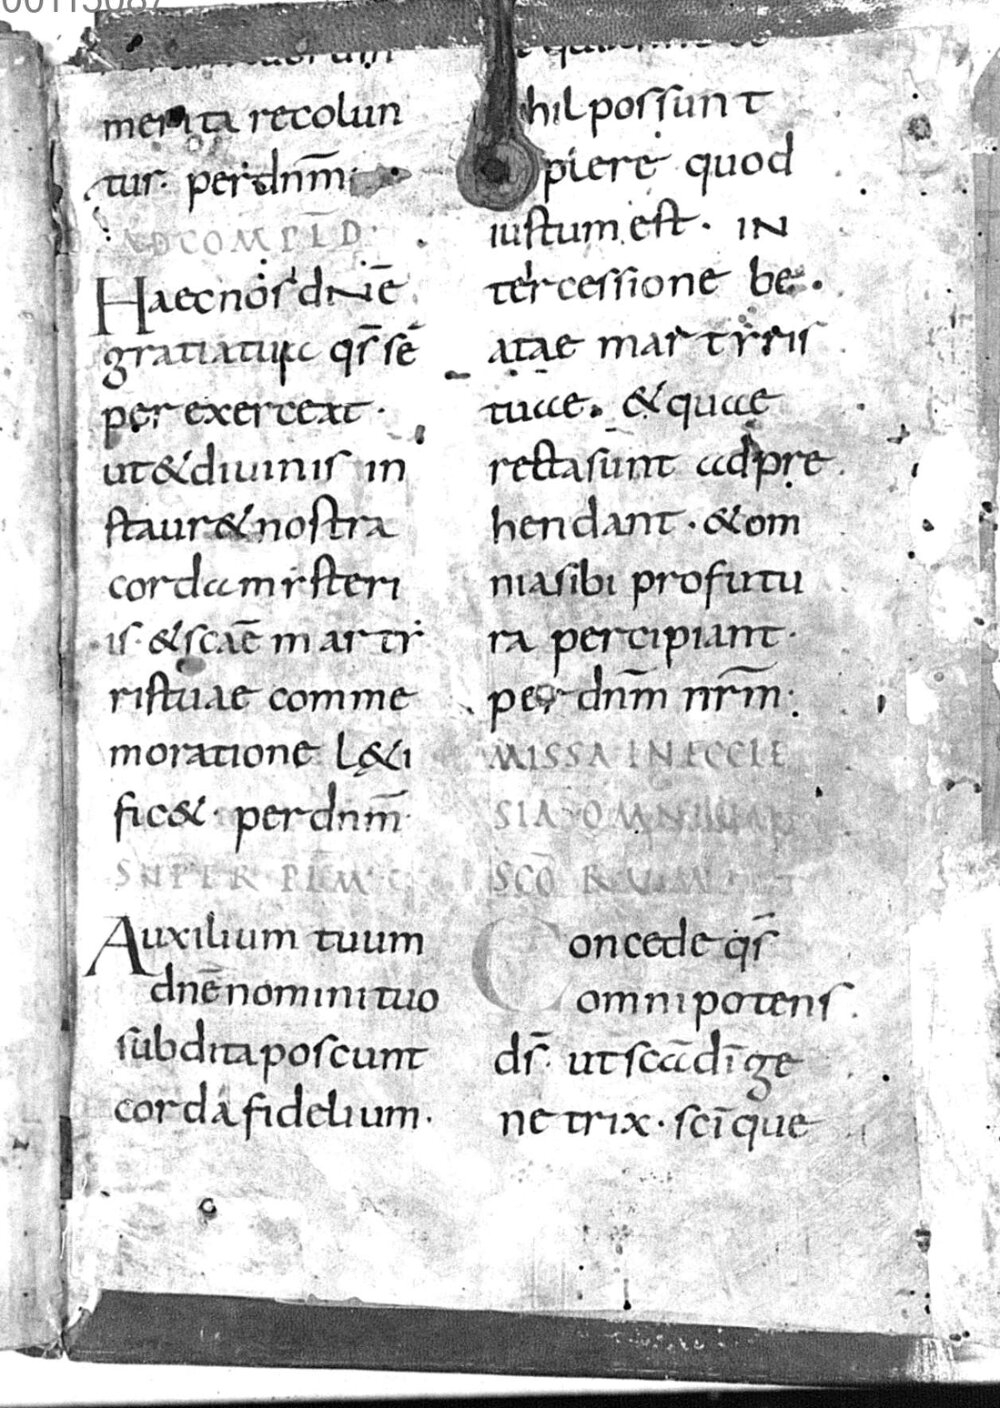 merita recolun
tur. per dnm̄
AD COMPLD
Haec nos dnē
gratia tua qs̄ sē
per exerceat.
ut & diuinis in
staur& nostra
corda mysteri
is. & scāe marty
ris tuae comme
moratione l&i
fic&. per dnm̄
SUPER
Auxilium tuum
dnē nomini tuo
subdita poscunt
corda fidelium.
hil possunt
piere quod
iustum est. IN
tercessione be
atae martyris
tuae. & quae
recta sunt adpre
hendant. & om
nia sibi profutu
ra percipiant.
per dnm̄ nrm̄:
MISSA IN ECCLE
SIA
SCŌRUM
Concede qs̄
omnipotens
ds̄. ut scā dī ge
netrix. scīque